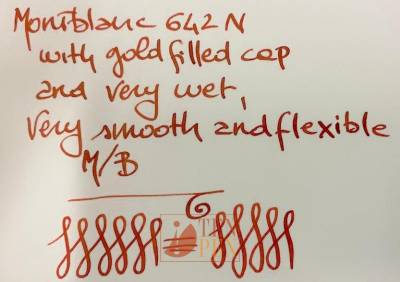 Montblanc 642 N
with gold filled cap
and very wet,
very smooth and flexible
M/B